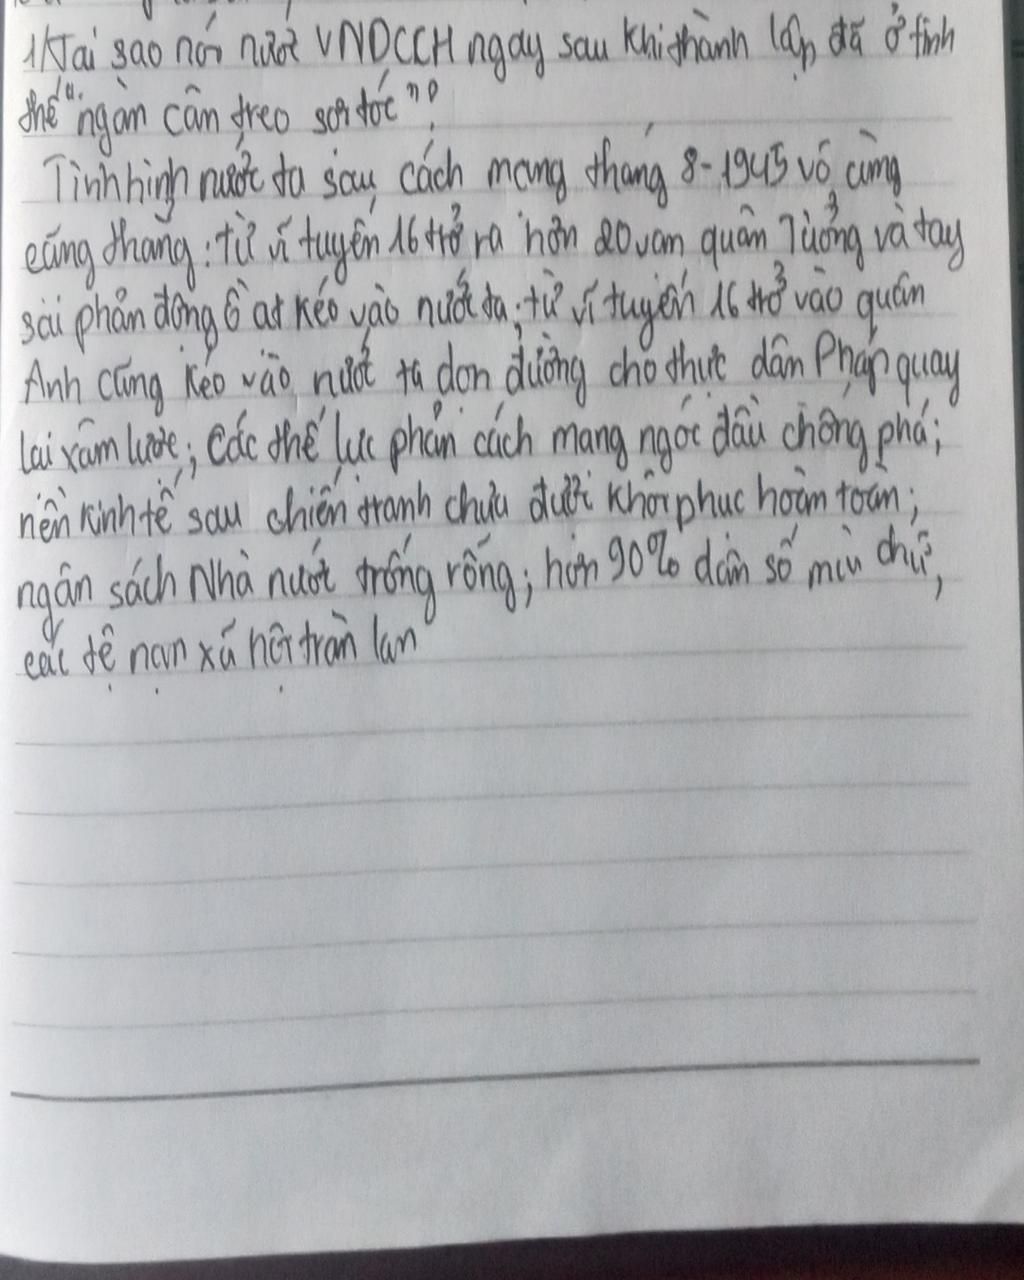 1) Tại sao nói nước VNDCCH ngay sau khi thành lập đã ở tình
thế "ngàn cân treo sợi tóc"?
Tình hình nước ta sau cách mạng tháng 8-1945 vô cùng
căng thẳng: từ vĩ tuyến 16 trở ra hơn 20 vạn quân Tưởng và tay
sai phản động ồ ạt kéo vào nước ta; từ vĩ tuyến 16 trở vào quân
Anh cũng kéo vào nước ta dọn đường cho thực dân Pháp quay
lại xâm lược; các thế lực phản cách mạng ngóc đầu chống phá;
nền kinh tế sau chiến tranh chưa được khôi phục hoàn toàn;
ngân sách Nhà nước trống rỗng; hơn 90% dân số mù chữ,
các tệ nạn xã hội tràn lan